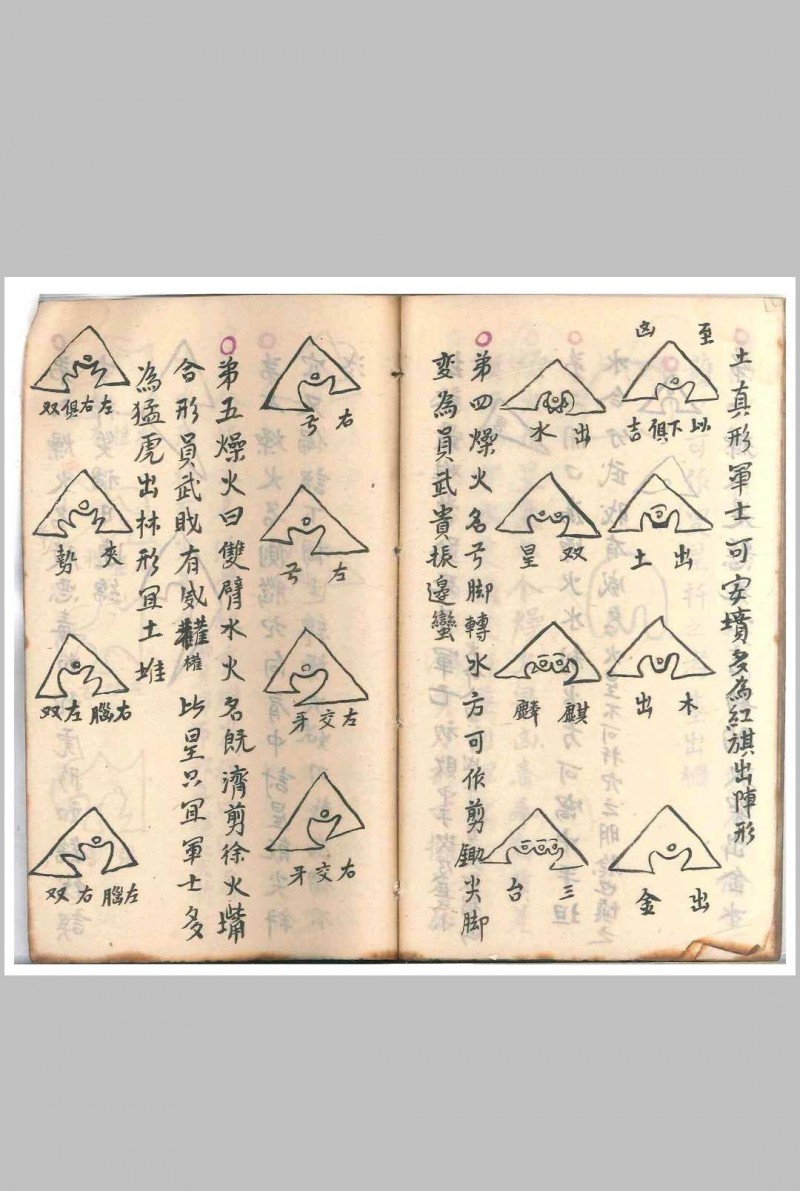 土真形軍士可安墳多為紅旗出陣形
至凶
以下俱吉
出土
木出
出金
出水
双星
麒麟
三台
第四燥火名㝍脚轉水方可作剪鋤尖脚
变為員武貴振邊蠻
右㝍
左㝍
左交牙
右交牙
第五燥火曰雙臂水火名既濟剪徐火嘴
合形員武戝有威權 比星只宜軍士多
為猛虎出林形宜土堆
左右俱双
夾勢
右腦左双
左腦右双